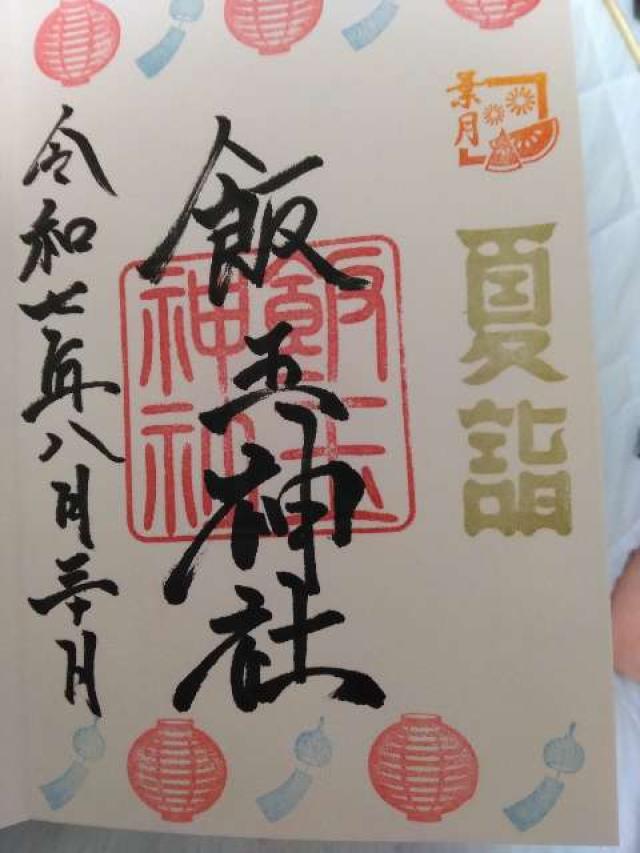 葉月
夏詣
飯玉神社
飯玉
神社
令和七年八月三十日